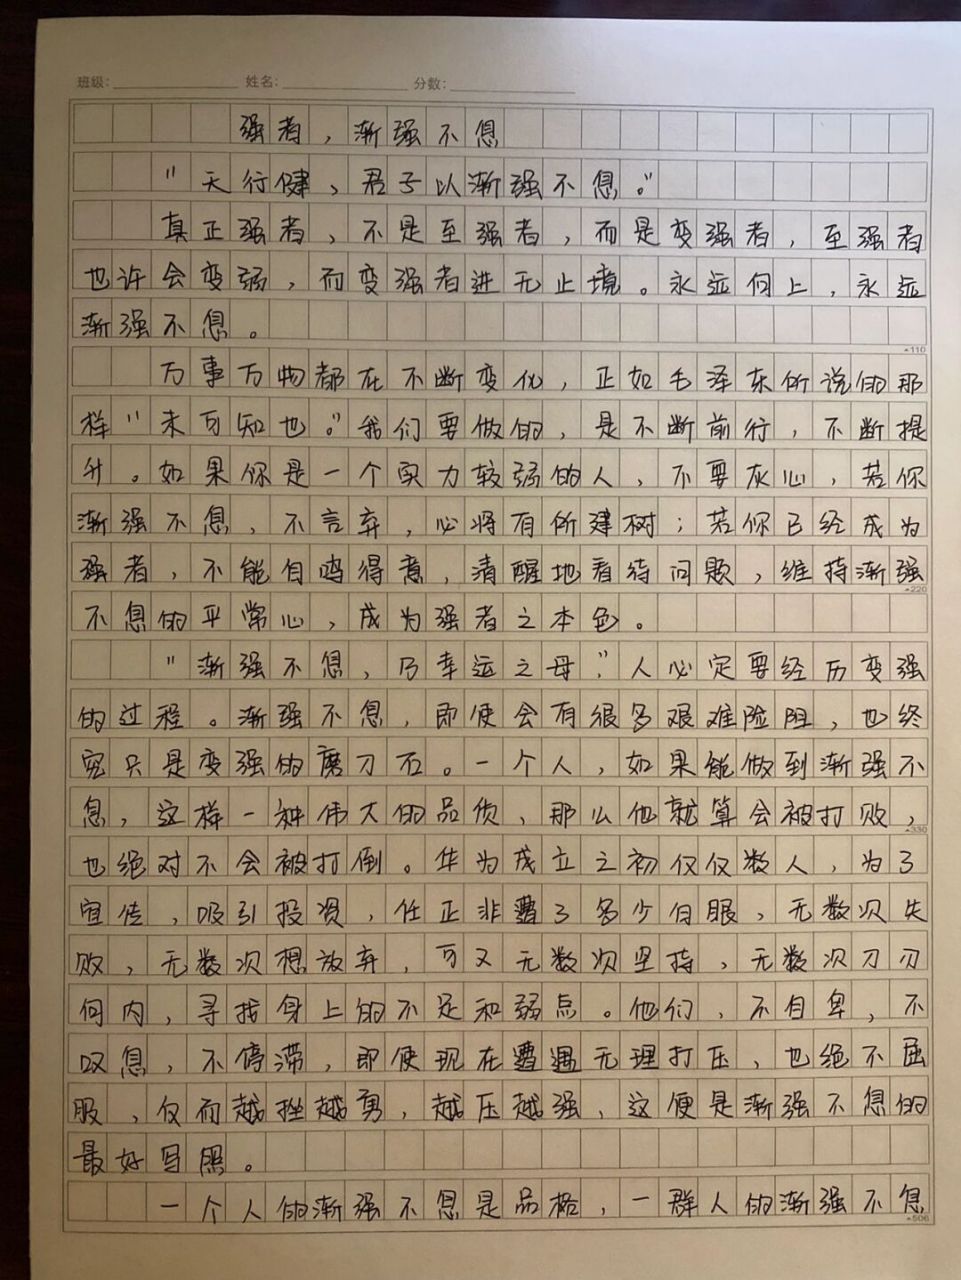 班级： 姓名： 分数：
强者，渐强不息
“天行健，君子以渐强不息。”
真正强者，不是至强者，而是变强者，至强者
也许会变弱，而变强者进无止境。永远向上，永远
渐强不息。
▲110
万事万物都在不断变化，正如毛泽东所说的那
样“未可知也。”我们要做的，是不断前行，不断提
升。如果你是一个实力较弱的人，不要灰心，若你
渐强不息，不言弃，必将有所建树；若你已经成为
强者，不能自鸣得意，清醒地看待问题，维持渐强
▲220
不息的平常心，成为强者之本色。
“渐强不息，乃幸运之母，”人必定要经历变强
的过程。渐强不息，即使会有很多艰难险阻，也终
究只是变强的磨刀石。一个人，如果能做到渐强不
息，这样一种伟大的品质，那么他就算会被打败，
▲330
也绝对不会被打倒。华为成立之初仅仅数人，为了
宣传，吸引投资，任正非费了多少白眼，无数次失
败，无数次想放弃，可又无数次坚持，无数次刀刃
向内，寻找身上的不足和弱点。他们，不自卑，不
叹息，不停滞，即使现在遭遇无理打压，也绝不屈
服，仅而越挫越勇，越压越强，这便是渐强不息的
最好写照。
一个人的渐强不息是品格，一群人的渐强不息
▲506